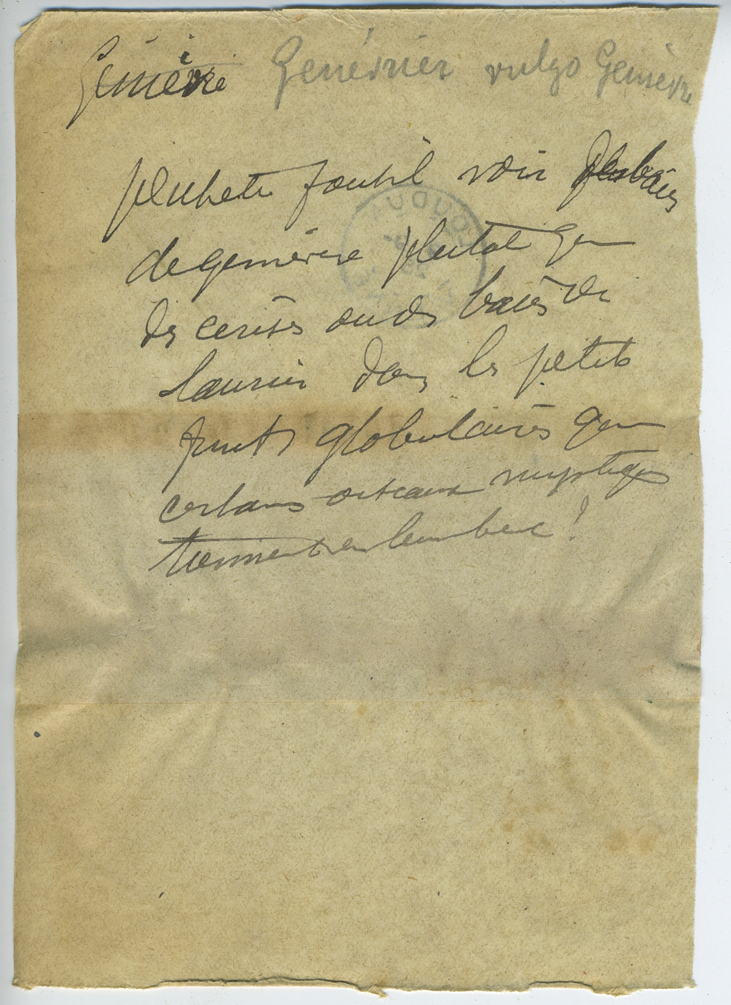 Genièvre Genévrier vulgo Genièvre
peut-être faut-il voir des baies
de genièvre plutot que
des cerises ou des baies de
laurier dans les petits
fruits globulaires que
certains oiseaux mystiques
tiennent en leur bec !